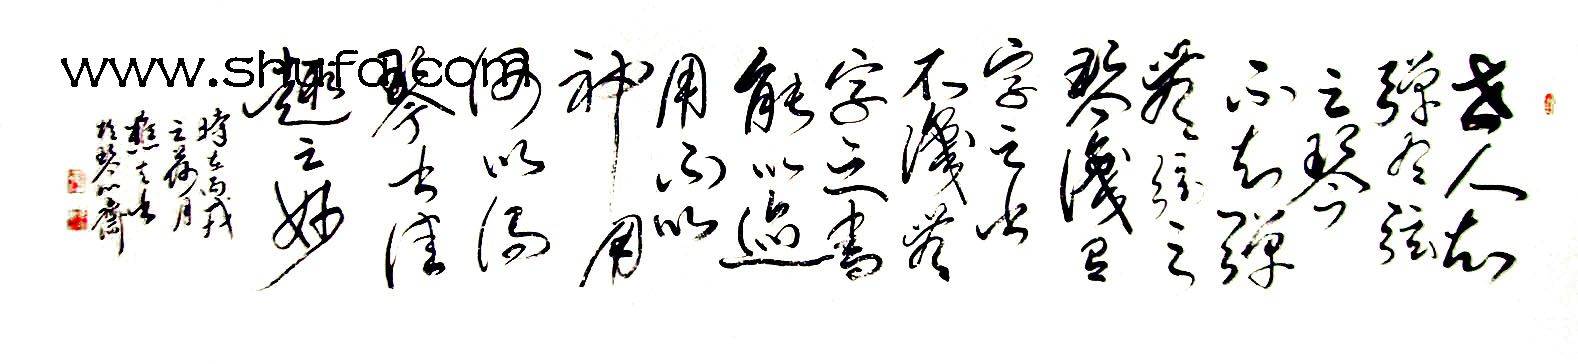 世人知
彈有弦
之琴
不知彈
無弦之
琴識有
字之書
不識無
字之書
能以迹
用不以
神用
何以得
琴書佳
趣之妙
時在丙戌
之荷月
書
於琴心齋
www.shufa.com